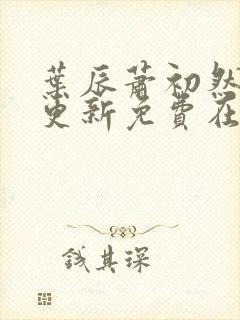 葉辰蕭初然
更新免費在
錢其琛